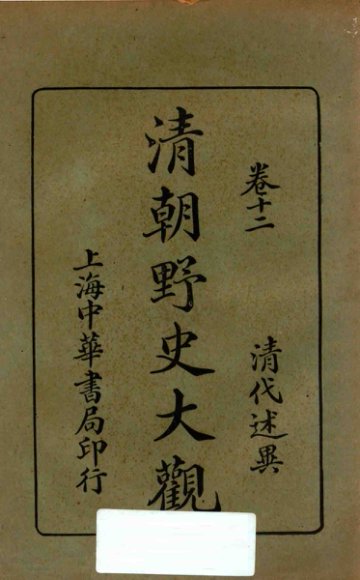 卷十二
清代述異
清朝野史大觀
上海中華書局印行